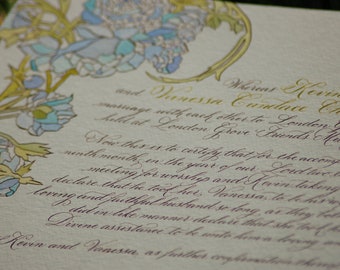 Whereas Kevin
and Vanessa Candace
marriage with each other to London
held at London Grove Friends
Now this is to certify that for the accom
ninth month, in the year of our Lord two
meeting for worship and Kevin taking
declare that he took her, Vanessa, to be his
loving and faithful husband so long as they both
did in like manner declare that she took
Divine assistance to be unto him a loving
Kevin and Vanessa, as further confirmation